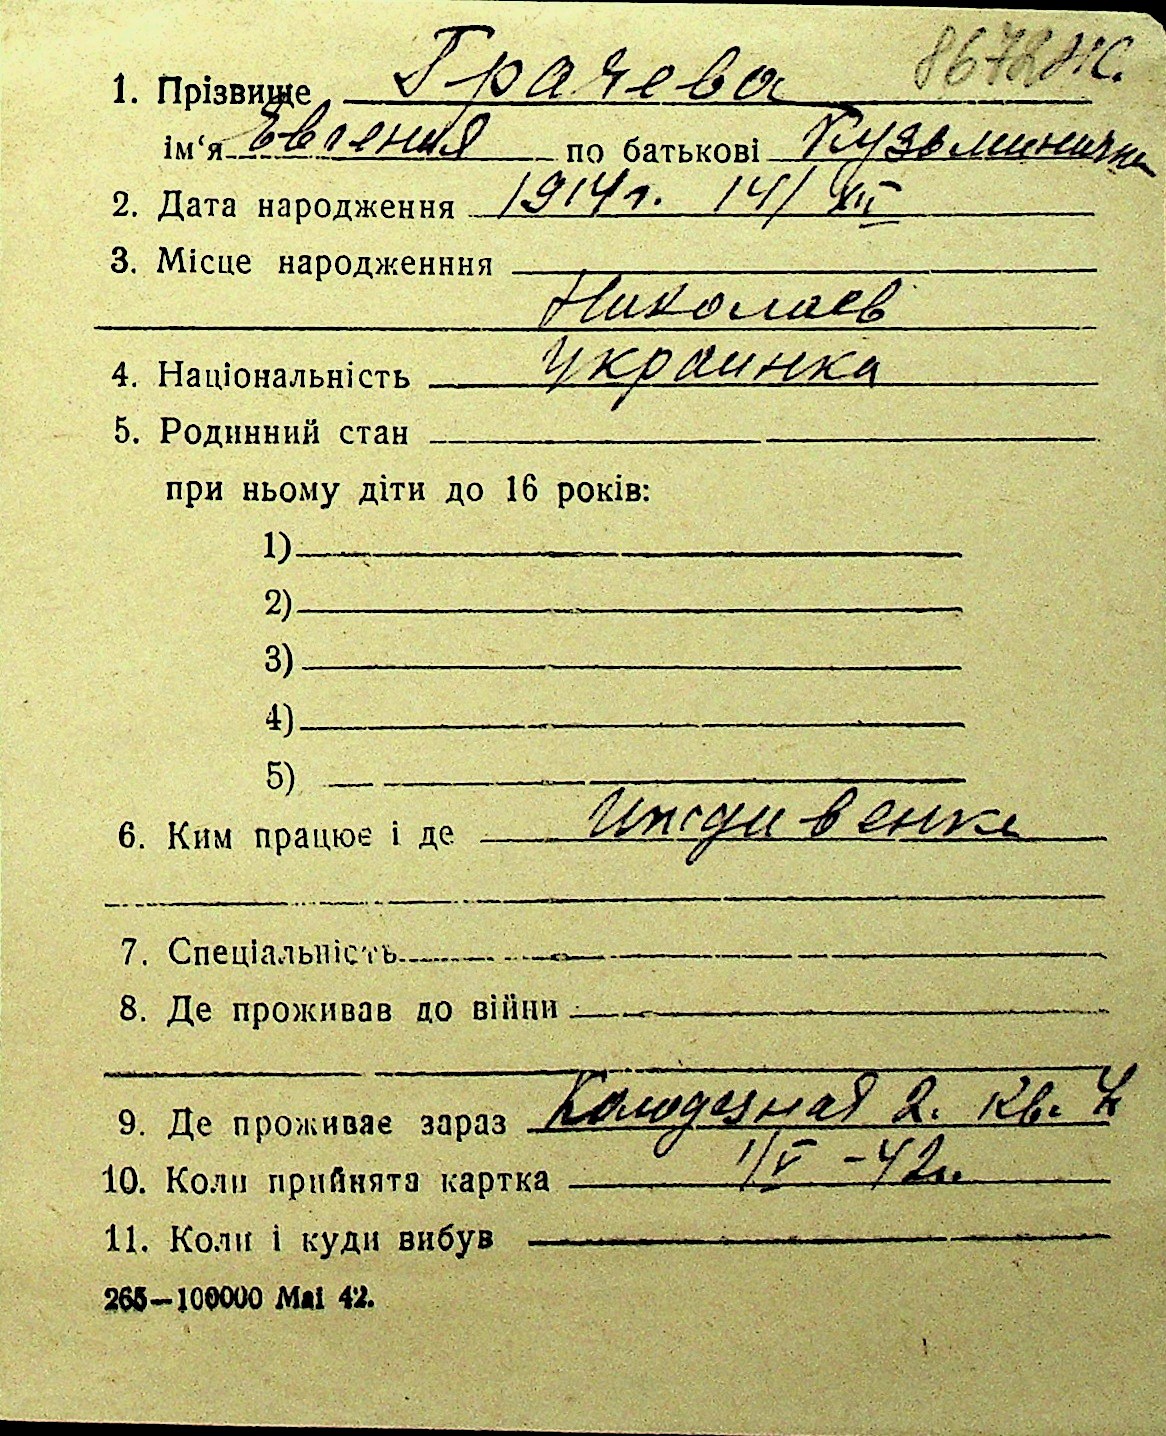 8672 Ж.
1. Прізвище Грачева
ім‘я Евгения по батькові Кузьминична
2. Дата народження 1914 г. 14/XII
3. Місце народженння
Николаев
4. Національність Украинка
5. Родинний стан
при ньому діти до 16 років:
1)
2)
3)
4)
5)
6. Ким працює і де Иждивенка
7. Спеціальність
8. Де проживав до війни
9. Де проживає зараз Колодезная 2. кв. 4
10. Коли прийнята картка 1/V-42г.
11. Коли і куди вибув
265—100000 Маі 42.